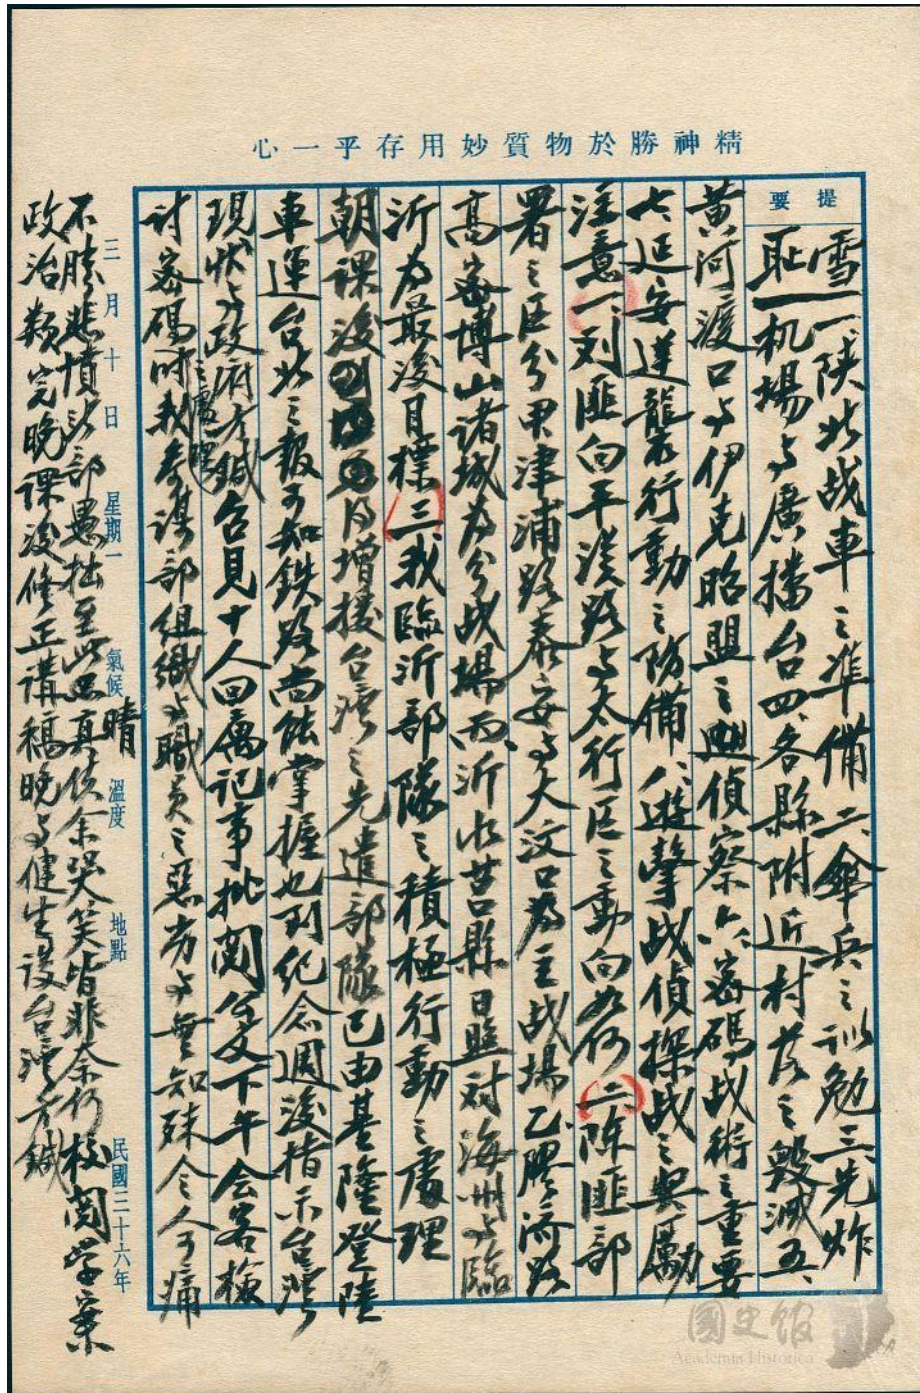 精神勝於物質妙用存乎一心
提要
雪恥 一、陝北战車之準備二、傘兵之訓勉三、先炸
机場与廣播台四、各縣附近村落之毀滅五、
黃河渡口与伊克昭盟之巡偵察六、密碼战術之重要
七、延安達龍 行動之防備八、遊擊战偵探战之奬勵
注意一、刘匪向平漢路与太行区之動向如何二、陈匪部
署之区分甲、津浦路泰安与大汶口為主战場乙、膠济路
高密博山诸城為分战場丙、沂水莒縣日照对海州与臨
沂為最後目標三、我臨沂部隊之積極行動之處理
朝課後 增援台灣之先遣部隊已由基隆登陸
車運台北之報可知鉄路尚能掌握也到纪念週後指示台灣
現狀与政府之處理方鍼召見十人回寓记事批阅公文下午会客検
讨密碼时我参谋部組織与職员之惡劣与無知殊令人可痛
三月十日 星期一 氣候 晴 溫度 地點 民國三十六年
不勝悲憤我部愚拙至此真使余哭笑皆非余何校阅学案
政治类完晚课後修正講稿晚与健生谈台灣方鍼
國史館
Academia Historica